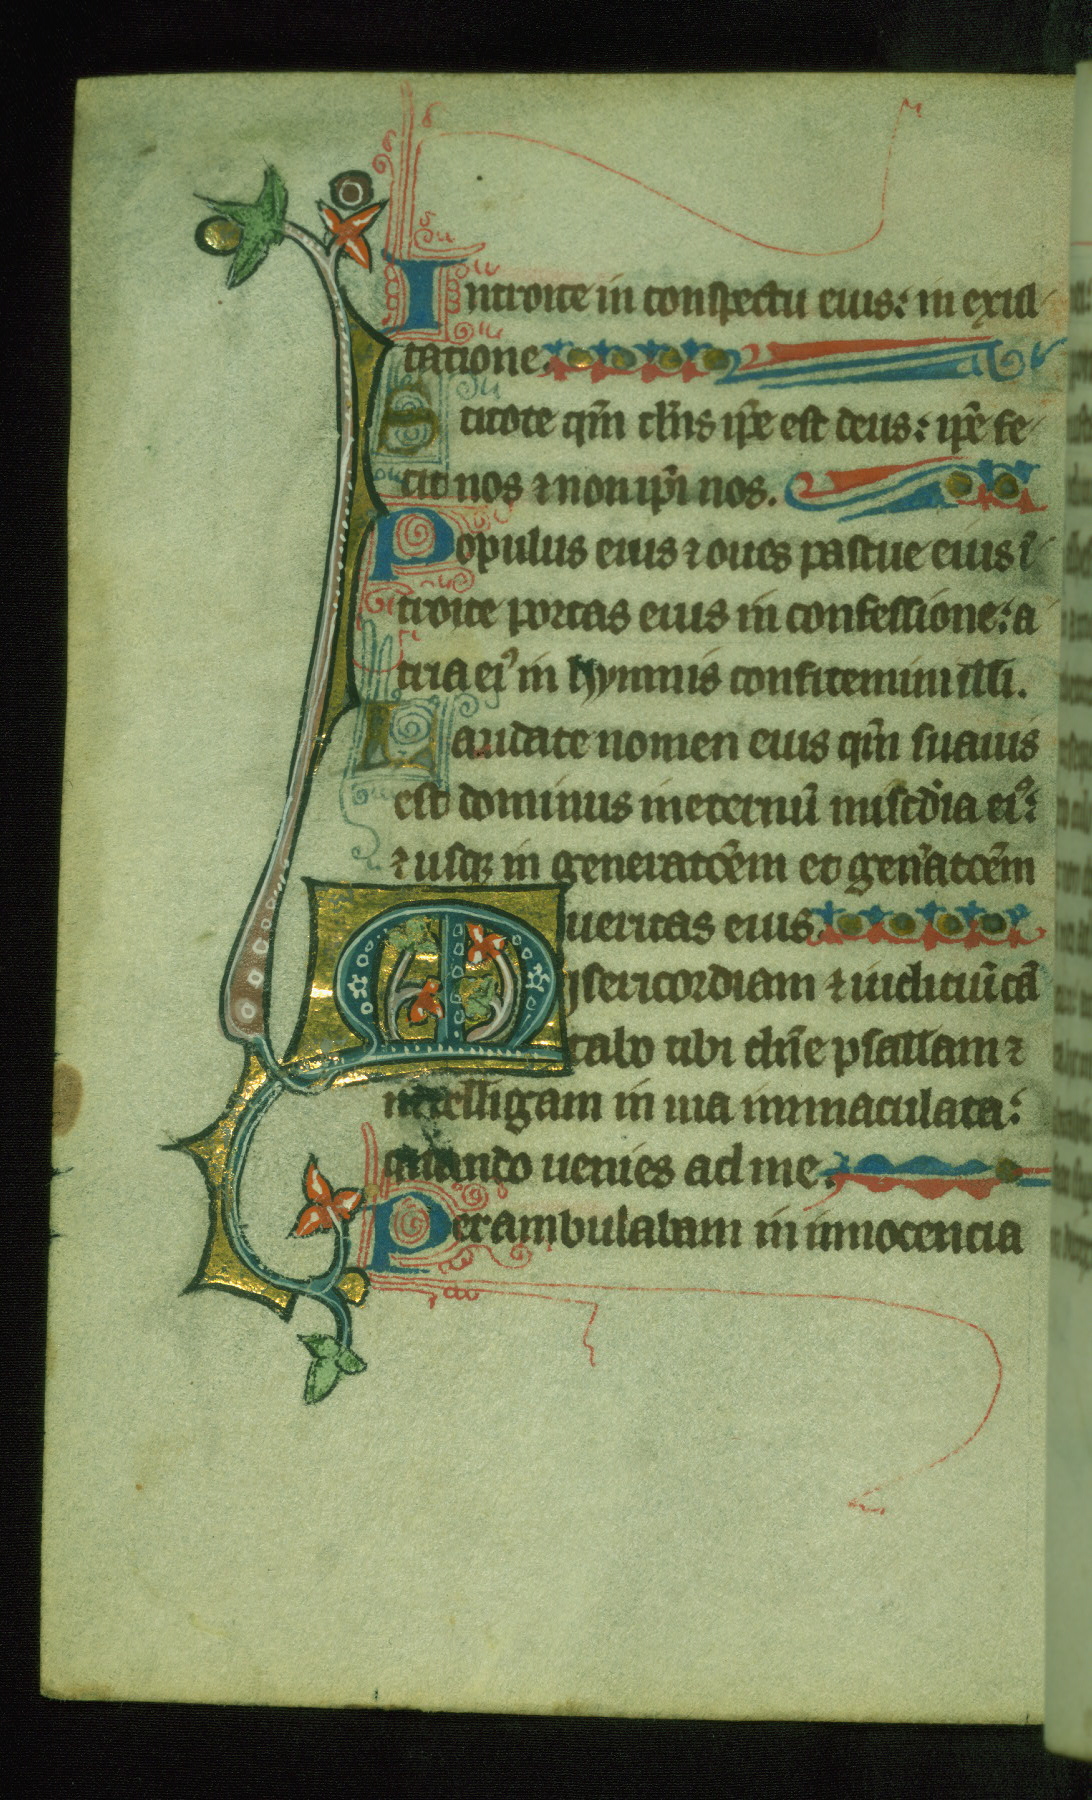 Introite in conspectu eius: in exul
tatione.
Scitote qm̄ dn̄s ip̄e est deus: ip̄e fe
cit nos ⁊ non ip̄i nos.
Populus eius ⁊ oues pascue eius ī
troite portas eius in confessione: a
tria ei᾽ in hymnis confitemini illi.
Laudate nomen eius qm̄ suauis
est dominus ineternū misc̄dia ei᾽:
⁊ usq; in generatōem et gen̄atōem
ueritas eius.
Misericordiam ⁊ iudiciū cā
tabo tibi dn̄e psallam ⁊
intelligam in uia immaculata:
quando uenies ad me.
Perambulabam in innocencia